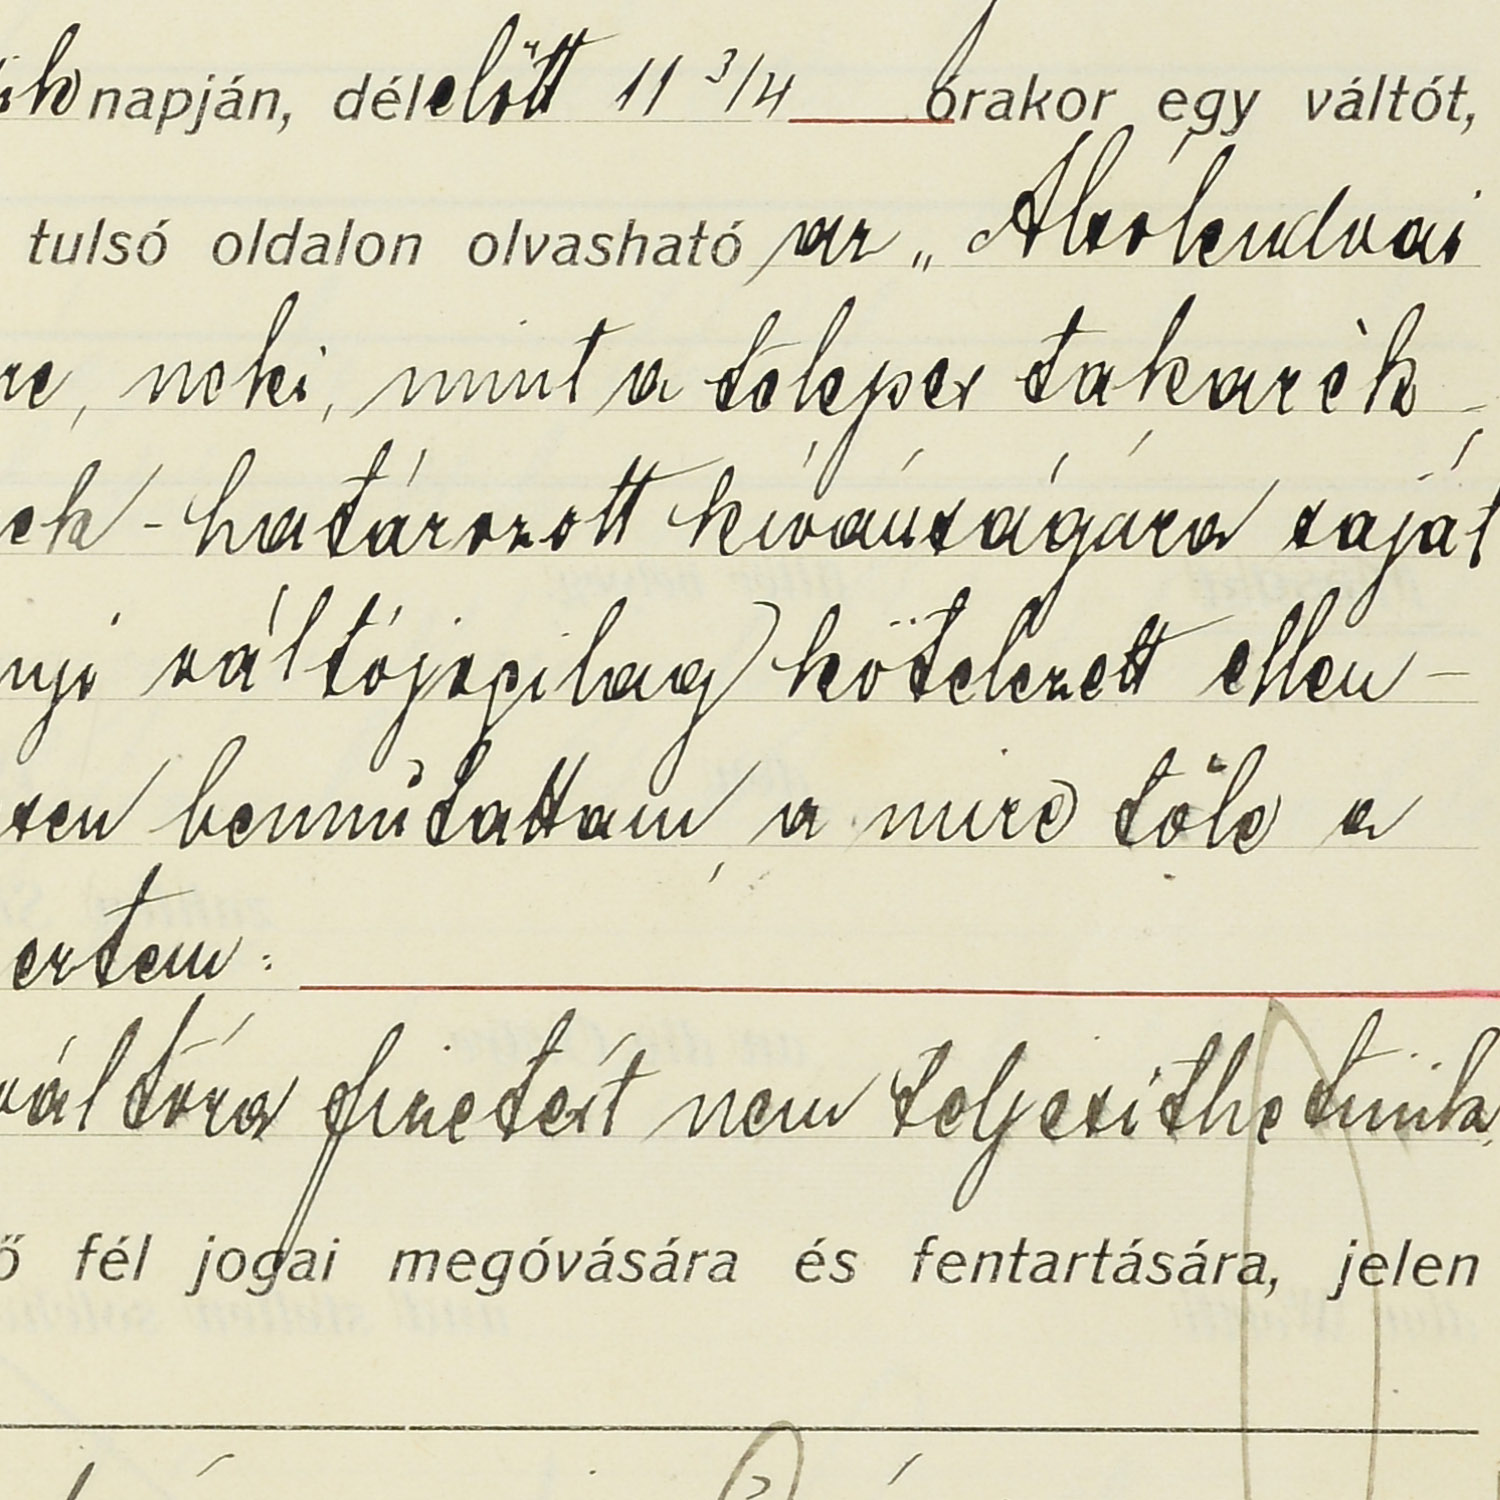 ik napján, délelőtt 11 3/4 órakor egy váltót,
tulsó oldalon olvasható az „Alsólendvai
re, neki, mint a telepes takarék-
ek - határozott kívánságára saját
nyi váltójogilag kötelezett ellen-
sen bemutattam, a mire tőle a
ertem:
váltóra fizetést nem teljesithetünk,
ő fél jogai megóvására és fentartására, jelen